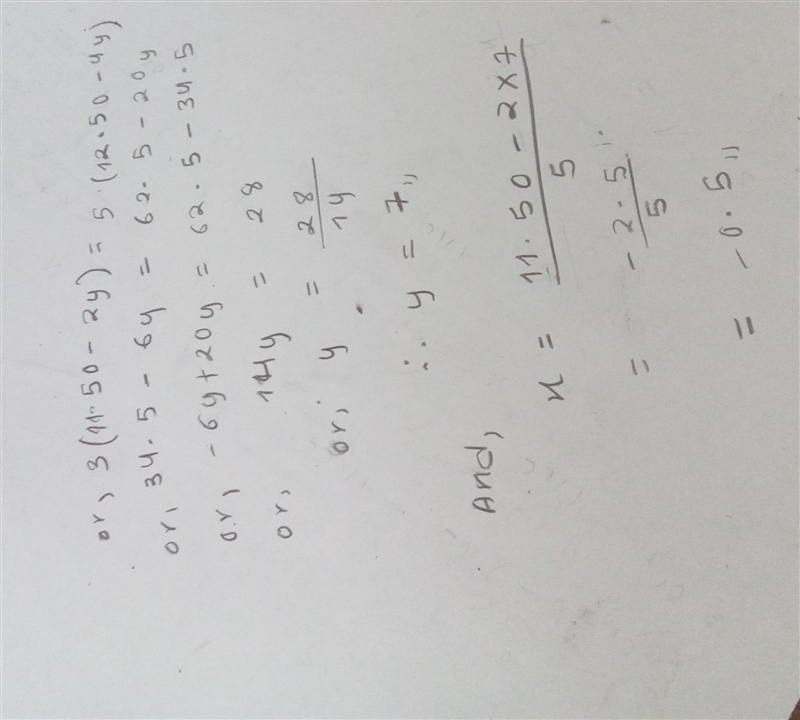 or, 3(11.50 - 2y) = 5(12.50 - 4y)
or, 34.5 - 6y = 62.5 - 20y
or, - 6y + 20y = 62.5 - 34.5
or, 14y = 28
or, y = 28/14
∴ y = 7,,
And,
x = 11.50 - 2×7 / 5
= - 2.5 / 5
= - 0.5,,